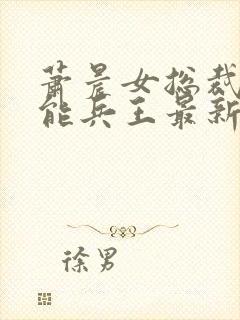 萧晨女总裁
能兵王最新
徐男